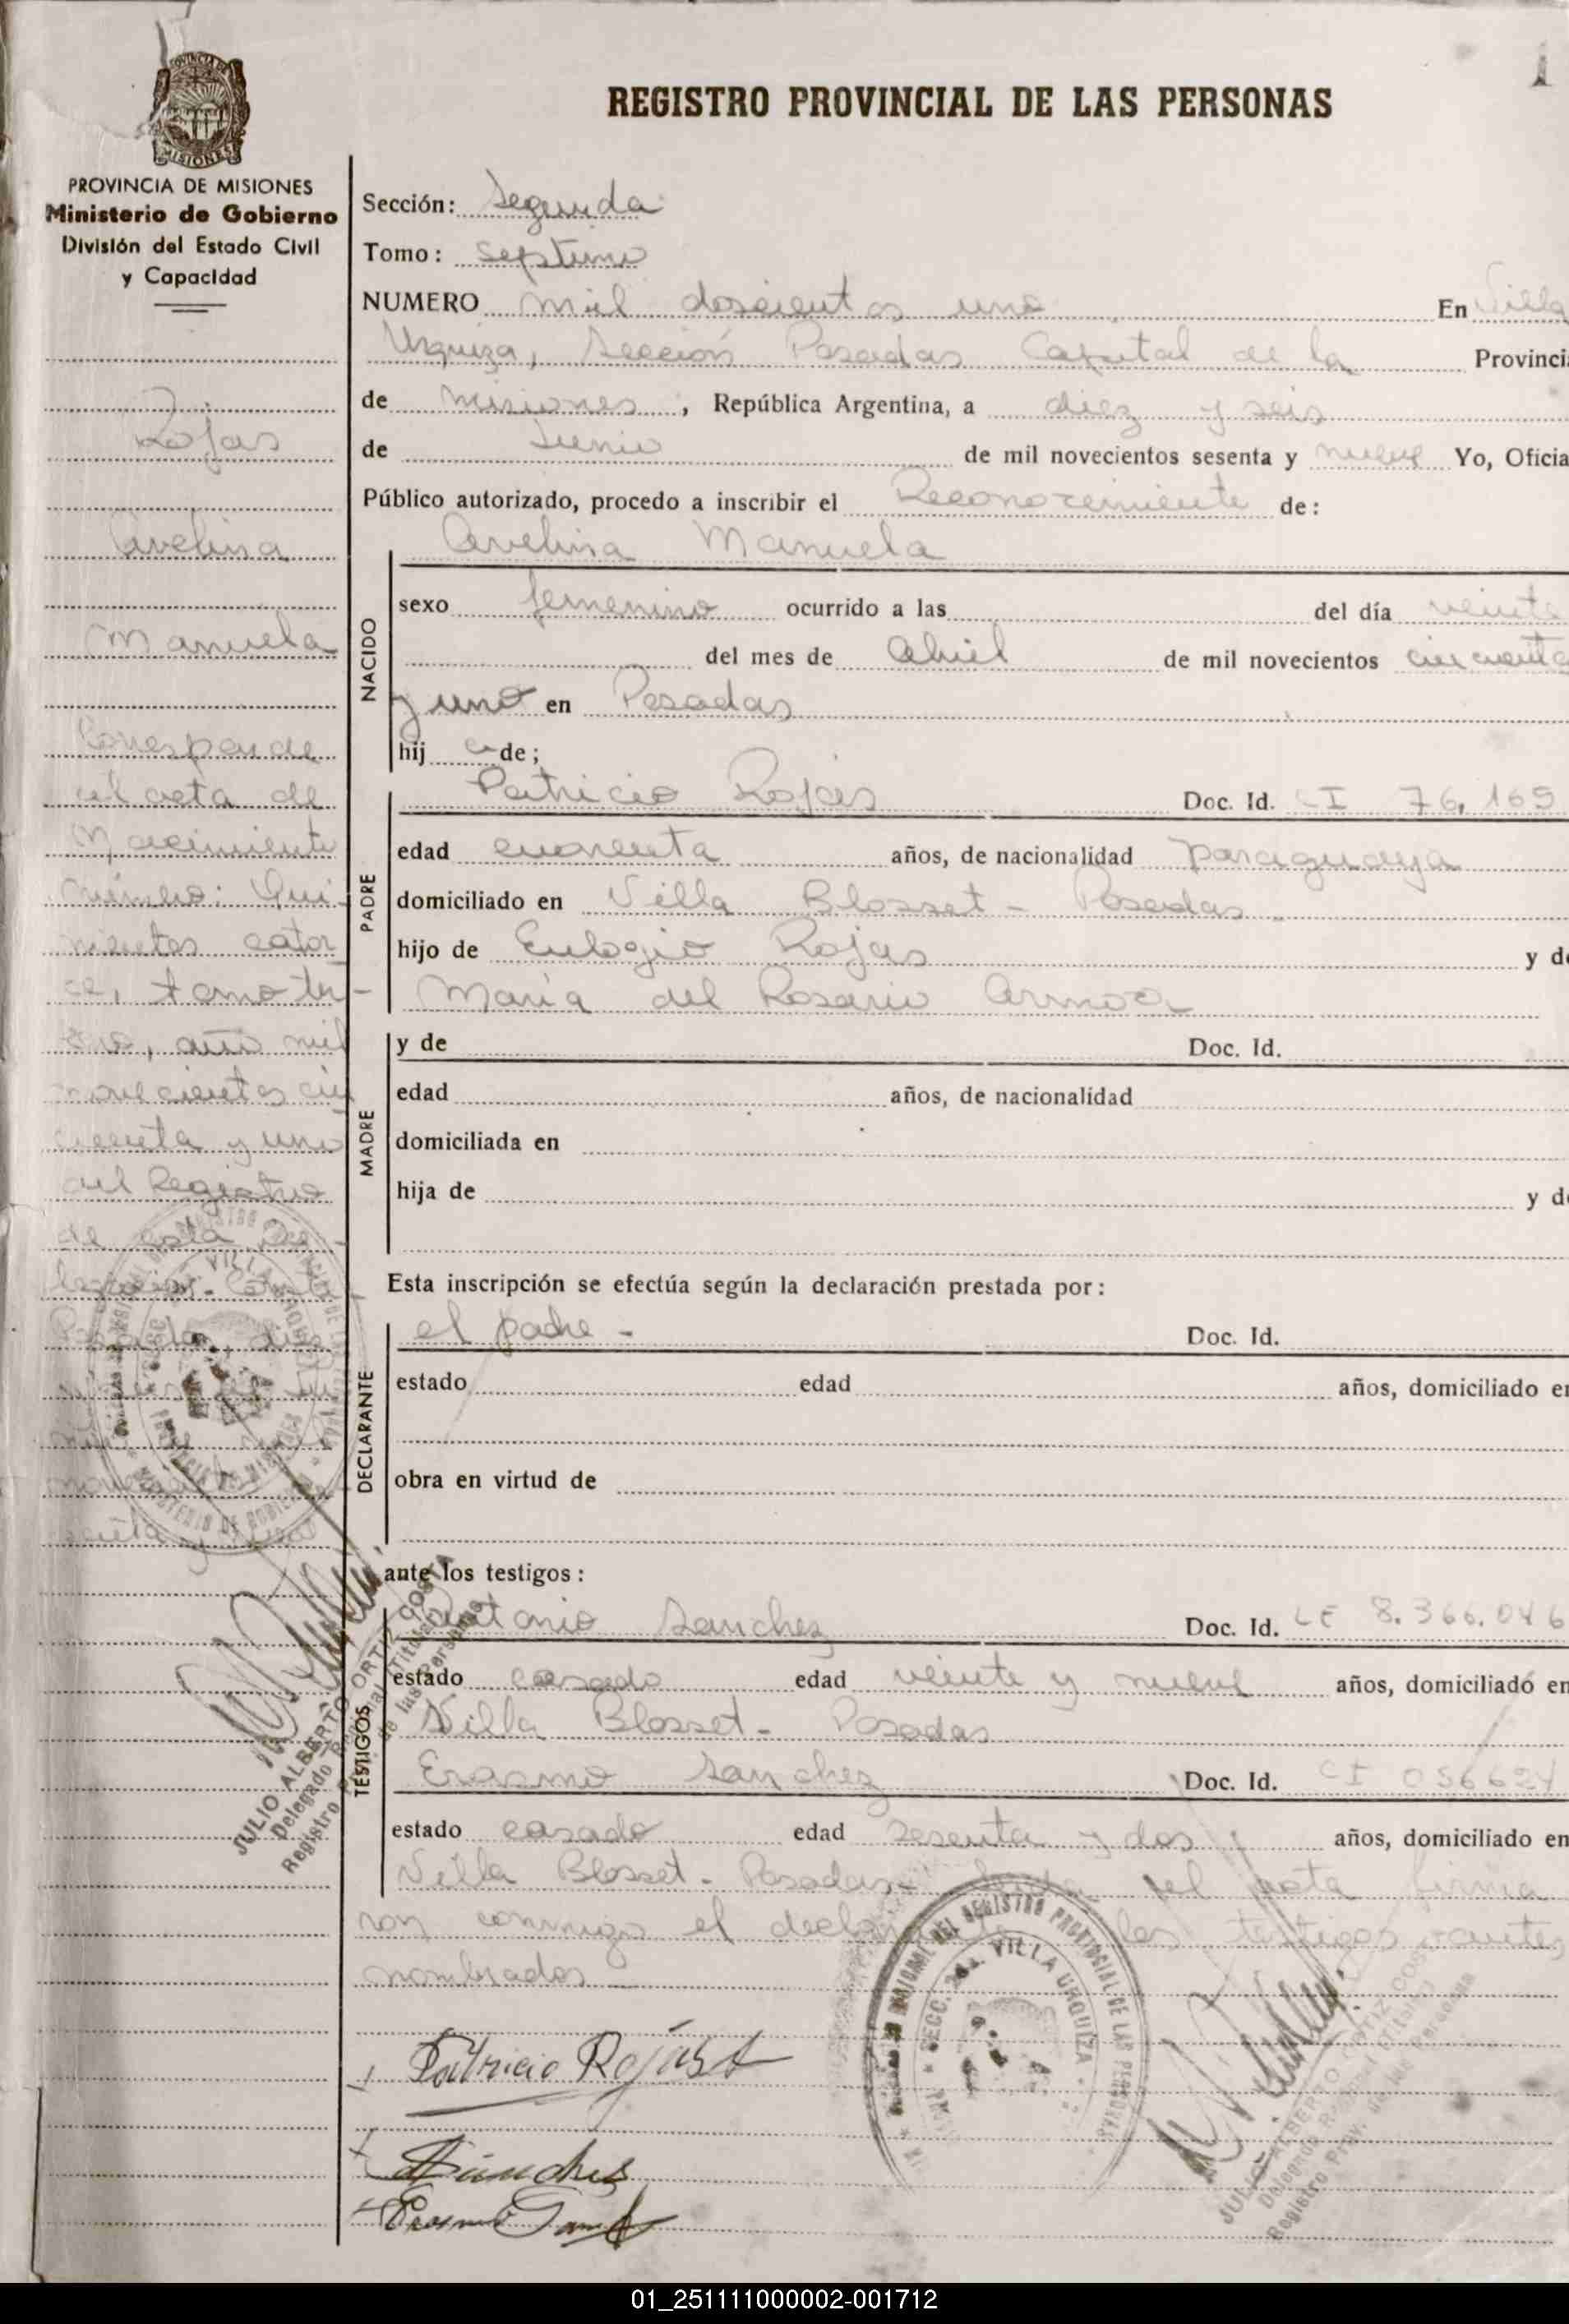 1
REGISTRO PROVINCIAL DE LAS PERSONAS
PROVINCIA DE MISIONES
Ministerio de Gobierno
División del Estado Civil
y Capacidad
Rojas
Avelina
Manuela
Corresponde
al acta de
Nacimiento
número: Qui-
nientos cator
ce, tomo ter-
cero, año mil
novecientos cin
cuenta y uno
del Registro
de esta De-
legación. Conste
Posadas, diez
mil
novecientos
senta y
JULIO ALBERTO ORTIZ COSTA
Delegado Regional (Titular)
Registro Prov. de las Personas
Sección: Segunda
Tomo: Septimo
NUMERO mil doscientos uno En Villa
Urquiza, Sección Posadas Capital de la Provincia
de Misiones, República Argentina, a diez y seis
de Junio de mil novecientos sesenta y nueve Yo, Oficia
Público autorizado, procedo a inscribir el Reconocimiento de:
Avelina Manuela
NACIDO
sexo femenino ocurrido a las del día veinte
del mes de Abril de mil novecientos cincuenta
y uno en Posadas
hij a de;
PADRE
Patricio Rojas Doc. Id. CI 76,169
edad cuarenta años, de nacionalidad paraguaya
domiciliado en Villa Blosset - Posadas
hijo de Eulogio Rojas y de
María del Rosario Armoa
MADRE
y de Doc. Id.
edad años, de nacionalidad
domiciliada en
hija de y de
Esta inscripción se efectúa según la declaración prestada por:
DECLARANTE
el padre - Doc. Id.
estado edad años, domiciliado en
obra en virtud de
ante los testigos:
TESTIGOS
Antonio Sanchez Doc. Id. LE 8.366.046
estado casado edad veinte y nueve años, domiciliado en
Villa Blosset - Posadas
Erasmo Sanchez Doc. Id. CI 056624
estado casado edad sesenta y dos años, domiciliado en
Villa Blosset - Posadas- Leida el acta firma
ron conmigo el declarante los testigos antes
nombrados
SECC. 2da. VILLA URQUIZA
Patricio Rojas A
A Sanches
JULIO ALBERTO ORTIZ COSTA
Delegado Regional (Titular)
Registro Prov. de las Personas
01_251111000002-001712